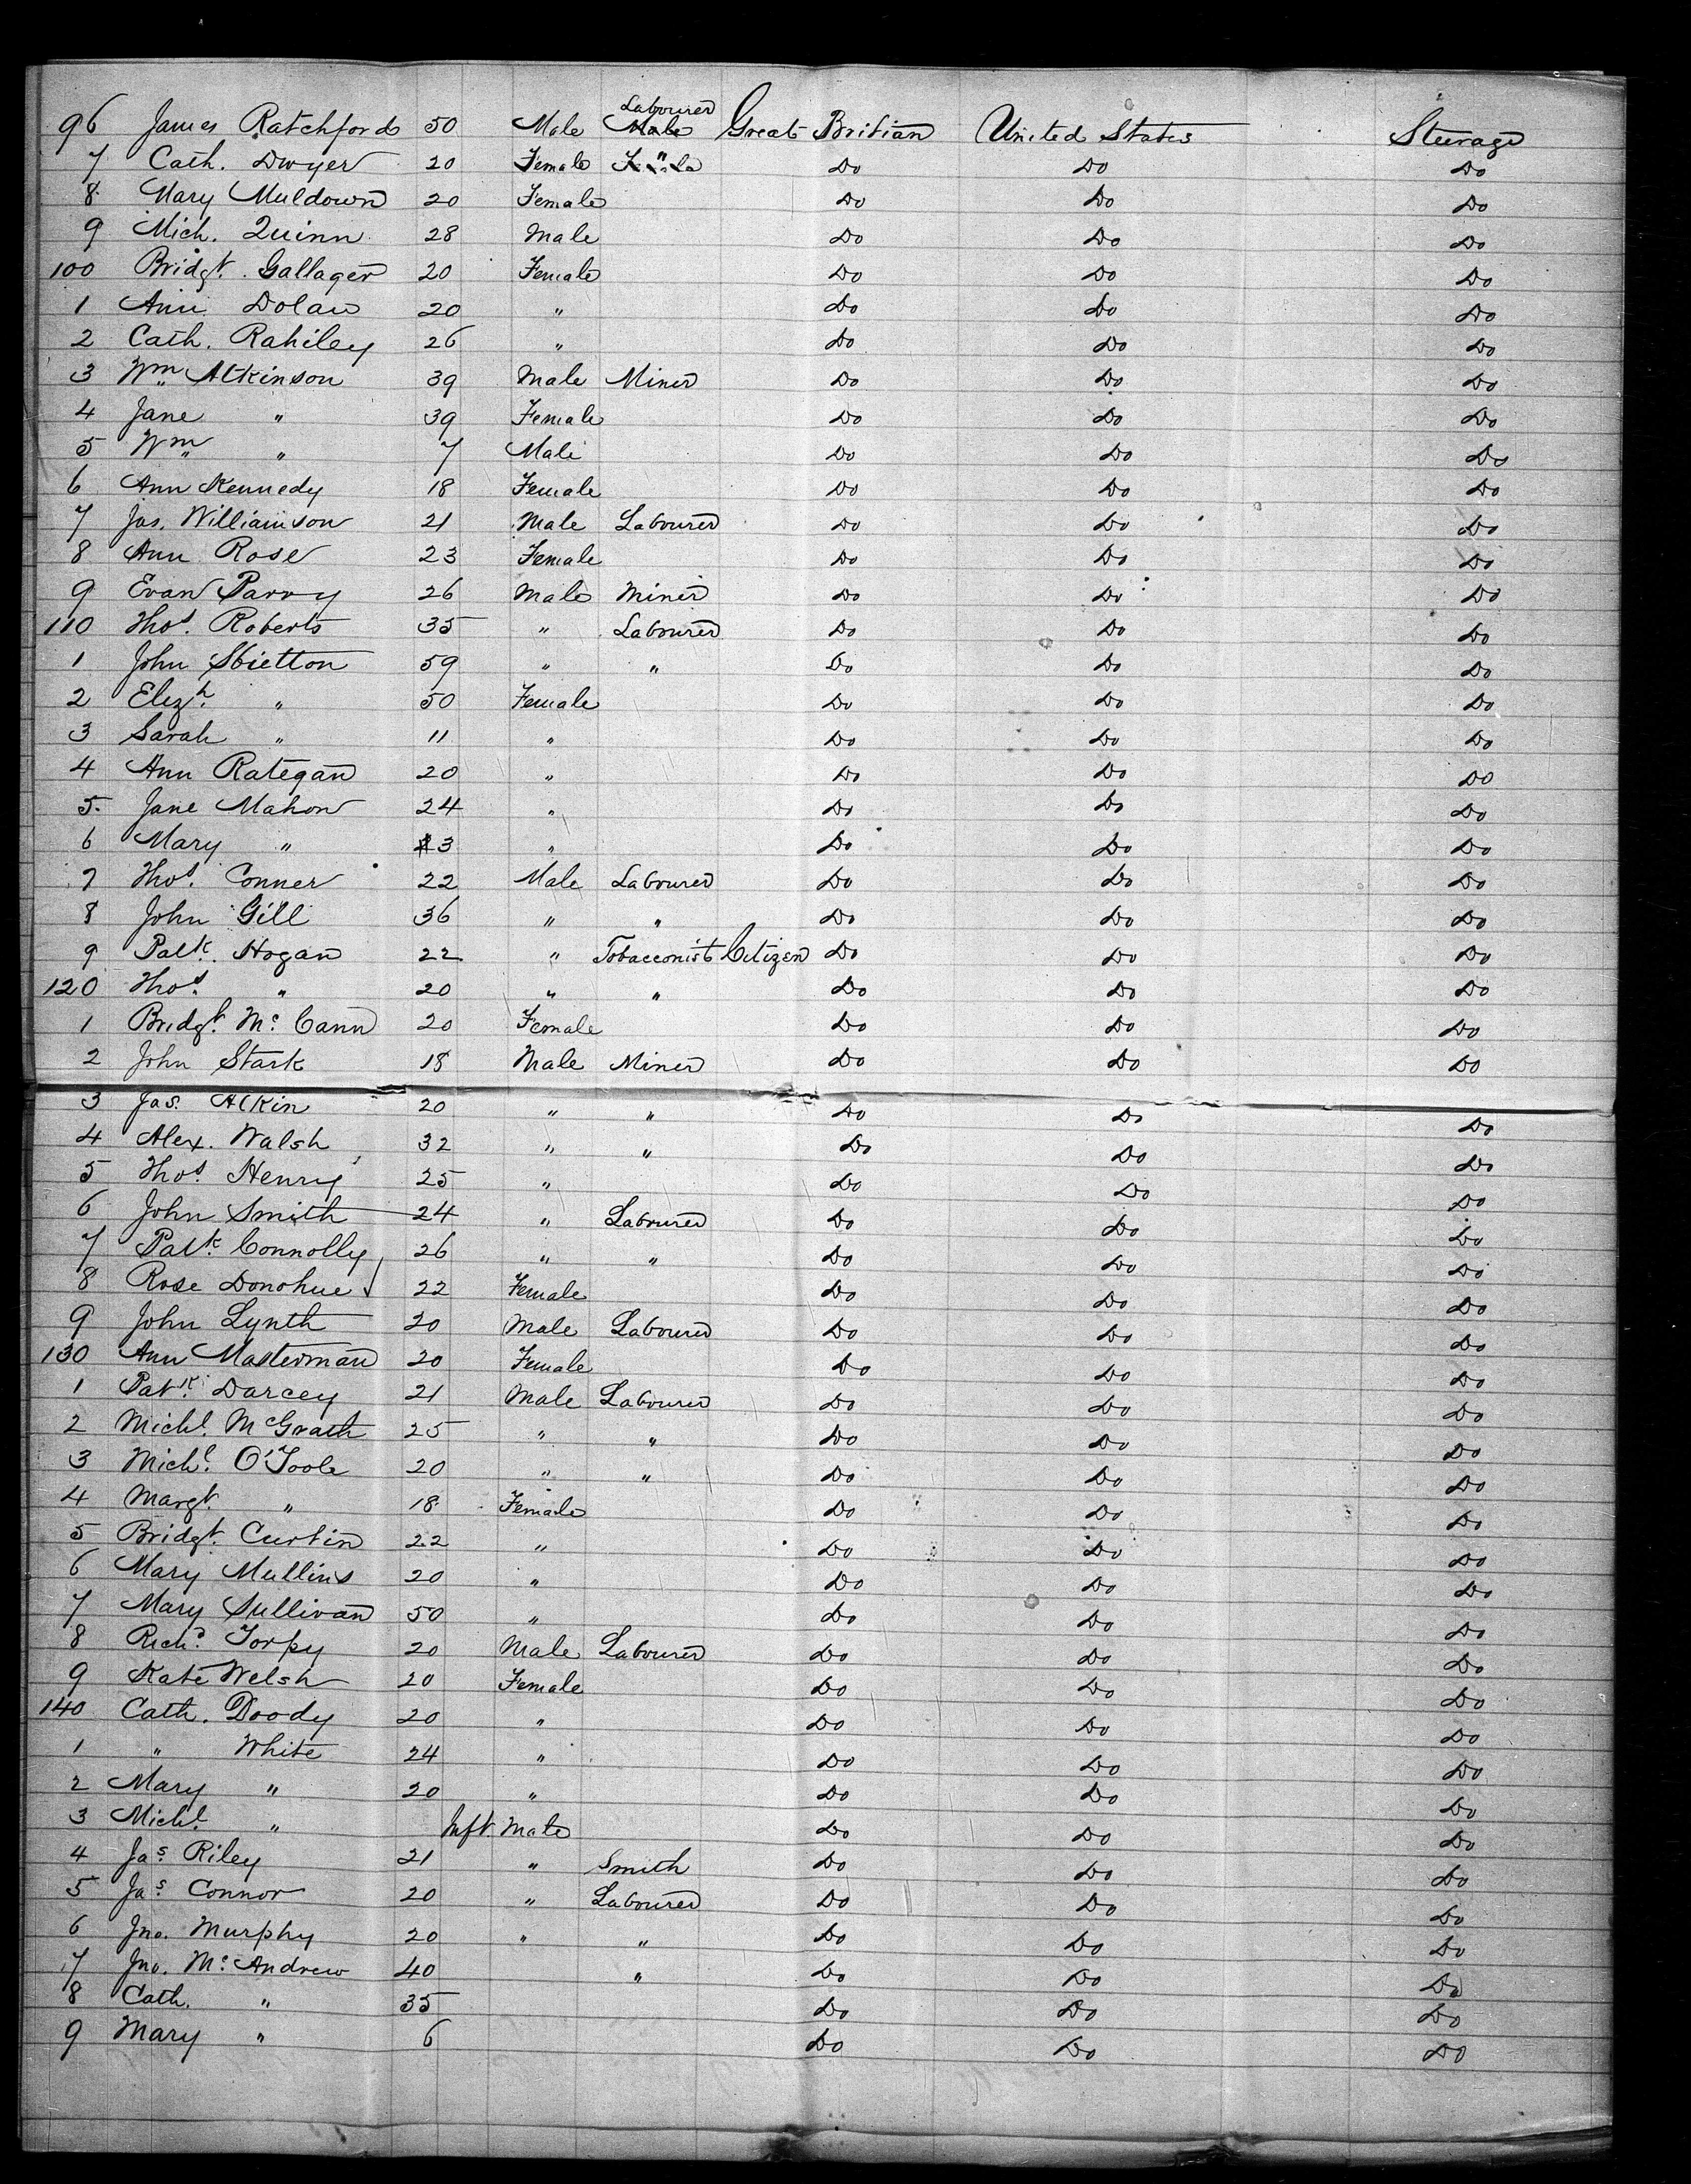 96 James Ratchford 50 Male Labourer Male Great Britian United States Steerage
7 Cath. Dwyer 20 Female " Do Do Do
8 Mary Muldown 20 Female Do Do Do
9 Mich. Quinn 28 Male Do Do Do
100 Bridgt. Gallager 20 Female Do Do Do
1 Ann Dolan 20 " Do Do Do
2 Cath. Rahiley 26 " Do Do Do
3 Wm Atkinson 39 Male Miner Do Do Do
4 Jane " 39 Female Do Do Do
5 Wm " 7 Male Do Do Do
6 Ann Kennedy 18 Female Do Do Do
7 Jas. Williamson 21 Male Labourer Do Do Do
8 Ann Rose 23 Female Do Do Do
9 Evan Parry 26 Male Miner Do Do Do
110 Thos. Roberts 35 " Labourer Do Do Do
1 John 59 " " Do Do Do
2 Elizh. " 50 Female Do Do Do
3 Sarah " 11 " Do Do Do
4 Ann Rategan 20 " Do Do Do
5 Jane Mahon 24 " Do Do Do
6 Mary " 3 " Do Do Do
7 Thos. Conner 22 Male Labourer Do Do Do
8 John Gill 36 " " Do Do Do
9 Patk. Hogan 22 " Tobacconist Citizen Do Do Do
120 Thos. " 20 " " Do Do Do
1 Bridgt. Mc Cann 20 Female Do Do Do
2 John Stark 18 Male Miner Do Do Do
3 Jas. Atkin 20 " " Do Do Do
4 Alex. Walsh 32 " " Do Do Do
5 Thos. Henry 25 " Do Do Do
6 John Smith 24 " Labourer Do Do Do
7 Patk. Connolly 26 " " Do Do Do
8 Rose Donohue 22 Female Do Do Do
9 John Lynth 20 Male Labourer Do Do Do
130 Ann Masterman 20 Female Do Do Do
1 Patk. Darcey 21 Male Labourer Do Do Do
2 Michl. McGrath 25 " " Do Do Do
3 Michl. O'Toole 20 " " Do Do Do
4 Margt. " 18 Female Do Do Do
5 Bridgt. Curtin 22 " Do Do Do
6 Mary Mullins 20 " Do Do Do
7 Mary Sullivan 50 " Do Do Do
8 Richd. Torpy 20 Male Labourer Do Do Do
9 Kate Welsh 20 Female Do Do Do
140 Cath. Doody 20 " Do Do Do
1 " White 24 " Do Do Do
2 Mary " 20 " Do Do Do
3 Michl. " Inft. Male Do Do Do
4 Jas. Riley 21 " Smith Do Do Do
5 Jas. Connor 20 " Labourer Do Do Do
6 Jno. Murphy 20 " " Do Do Do
7 Jno. Mc Andrew 40 " Do Do Do
8 Cath. " 35 Do Do Do
9 Mary " 6 Do Do Do